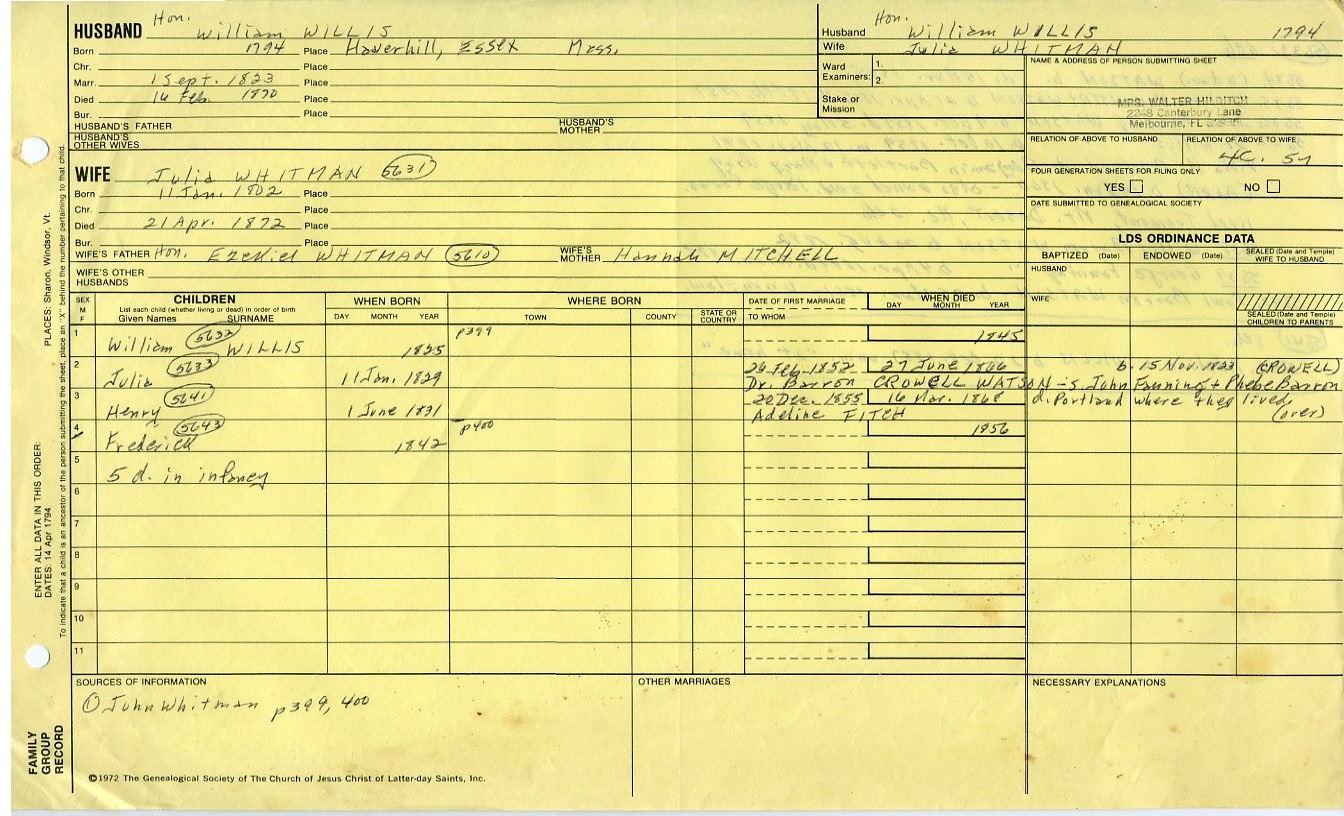 HUSBAND Hon. William WILLIS
Born 1794 Place Haverhill, Essex Mass.
Chr. Place
Marr. 1 Sept. 1823 Place
Died 16 Feb. 1870 Place
Bur. Place
HUSBAND'S FATHER HUSBAND'S MOTHER
HUSBAND'S OTHER WIVES
WIFE Julia WHITMAN 5631
Born 11 Jan. 1802 Place
Chr. Place
Died 21 Apr. 1872 Place
Bur. Place
WIFE'S FATHER Hon. Ezekiel WHITMAN 5610 WIFE'S MOTHER Hannah MITCHELL
WIFE'S OTHER HUSBANDS
Husband Hon. William WILLIS 1794
Wife Julia WHITMAN
Ward Examiners: 1. 2.
Stake or Mission
NAME & ADDRESS OF PERSON SUBMITTING SHEET
MRS. WALTER HINDITCH
2248 Canterbury Lane
Melbourne, FL
RELATION OF ABOVE TO HUSBAND RELATION OF ABOVE TO WIFE
4C. 5r
FOUR GENERATION SHEETS FOR FILING ONLY
YES NO
DATE SUBMITTED TO GENEALOGICAL SOCIETY
LDS ORDINANCE DATA
BAPTIZED (Date) ENDOWED (Date) SEALED (Date and Temple) WIFE TO HUSBAND
HUSBAND
WIFE
SEALED (Date and Temple) CHILDREN TO PARENTS
SEX M F
CHILDREN
List each child (whether living or dead) in order of birth
Given Names SURNAME
WHEN BORN
DAY MONTH YEAR
WHERE BORN
TOWN COUNTY STATE OR COUNTRY
DATE OF FIRST MARRIAGE
TO WHOM
WHEN DIED
DAY MONTH YEAR
1 William 5632 WILLIS 1825 p399 1845
2 Julia 5633 11 Jan. 1829 26 Feb. 1852 27 June 1866 b. 15 Nov. 1823 (CROWELL)
Dr. Barron CROWELL WATSON - s. John Fanning + Phebe Barron
3 Henry 5641 1 June 1831 20 Dec. 1855 16 Mar. 1868 d. Portland where they lived,
Adeline FITCH (over)
4 Frederick 5643 1842 p400 1856
5 5 d. in infancy
6
7
8
9
10
11
SOURCES OF INFORMATION
① John Whitman p399, 400
OTHER MARRIAGES
NECESSARY EXPLANATIONS
©1972 The Genealogical Society of The Church of Jesus Christ of Latter-day Saints, Inc.
FAMILY GROUP RECORD
ENTER ALL DATA IN THIS ORDER:
DATES: 14 Apr 1794
PLACES: Sharon, Windsor, Vt.
To indicate that a child is an ancestor of the person submitting the sheet, place an "X" behind the number pertaining to that child.